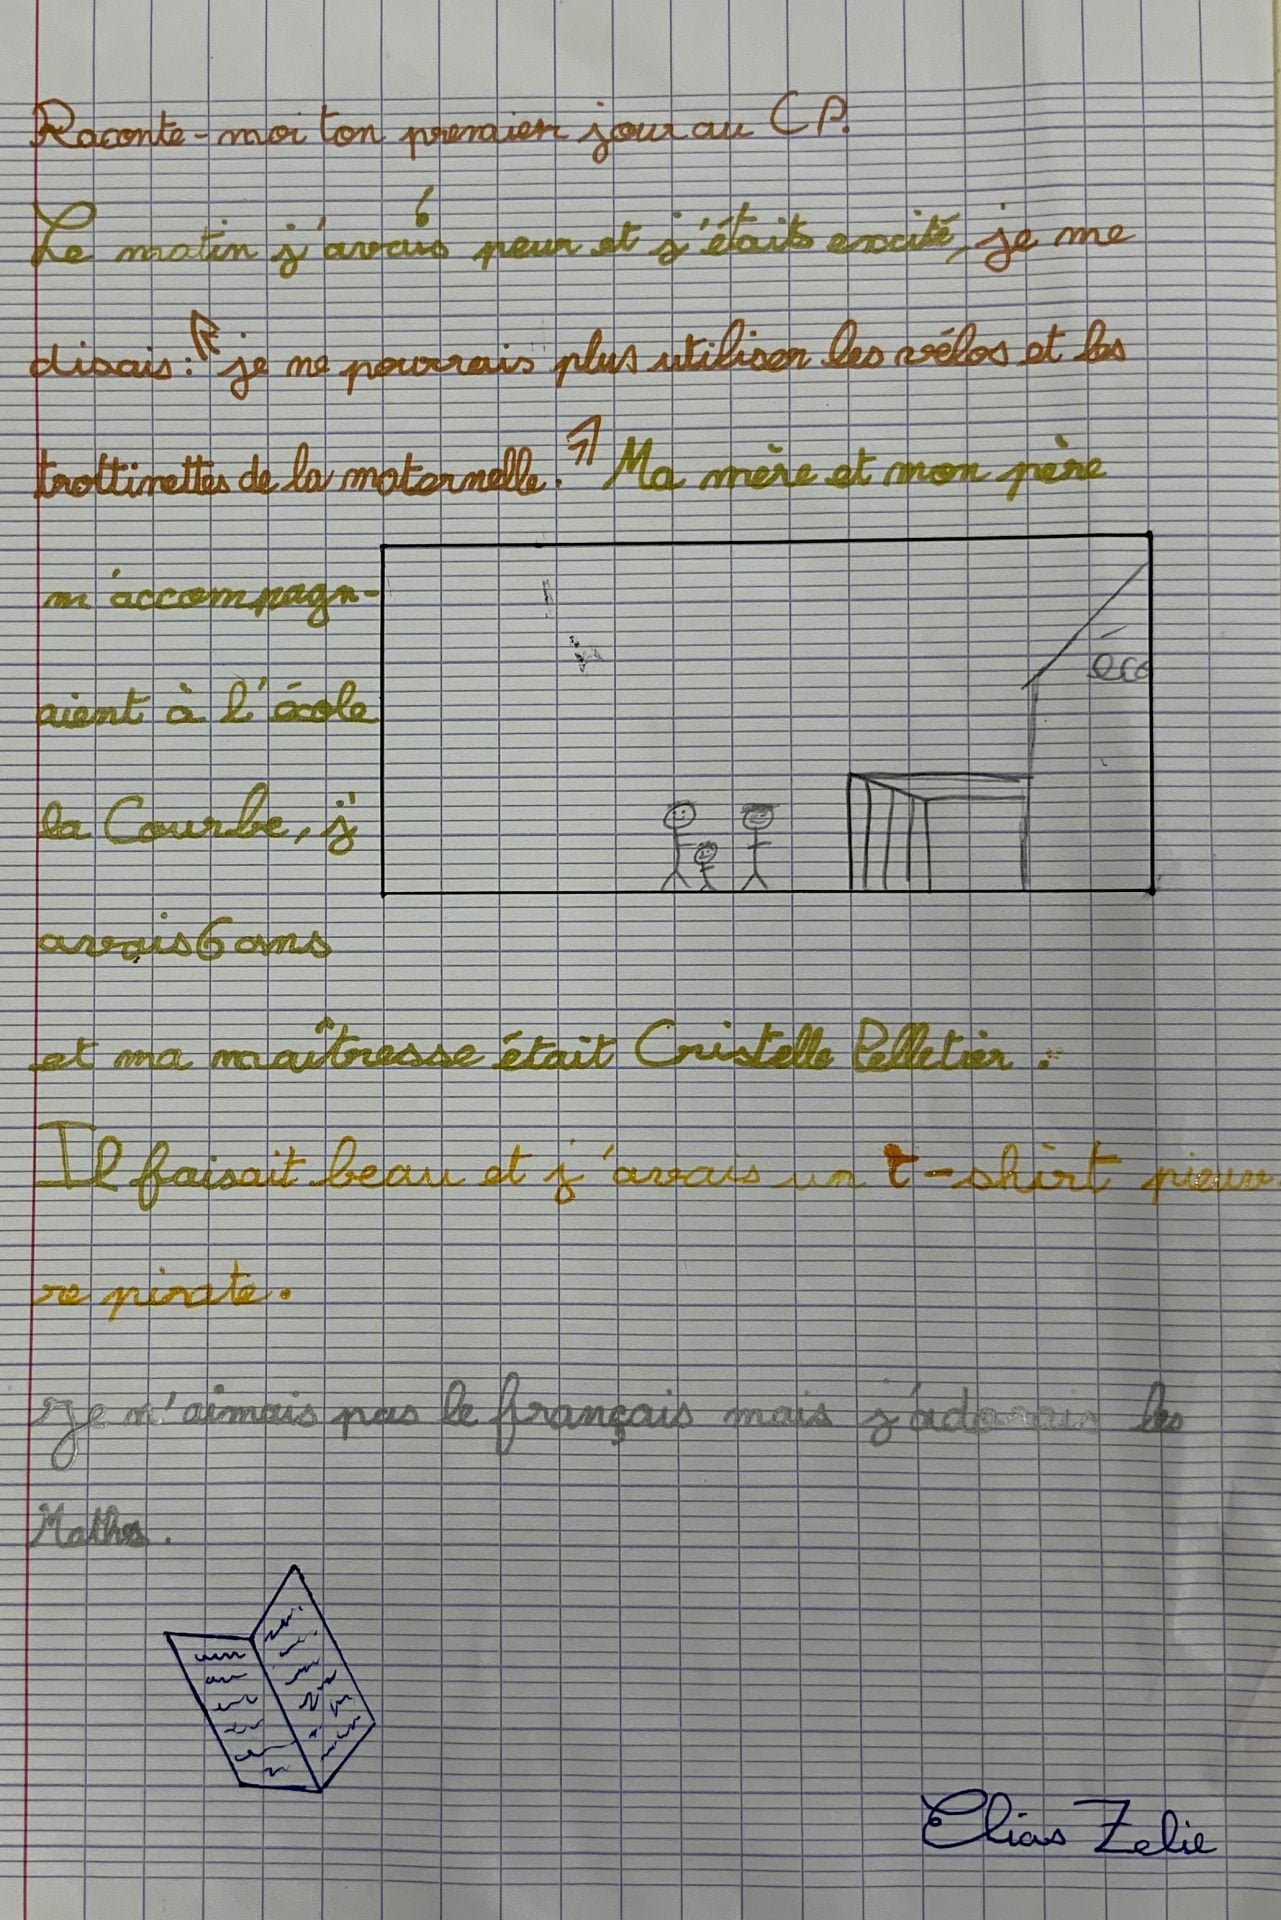 Raconte-moi ton premier jour au CP.
Le matin j'avais peur et j'étais excité, je me
disais: "je ne pourrais plus utiliser les vélos et les
trottinettes de la maternelle." Ma mère et mon père
m'accompagn-
aient à l'école
la Courbe, j'
avais 6 ans
éco
et ma maîtresse était Cristelle Pelletier.
Il faisait beau et j'avais un t-shirt pieuv
re pirate.
Je n'aimais pas le français mais j'adorais les
Maths.
Elias Zelie